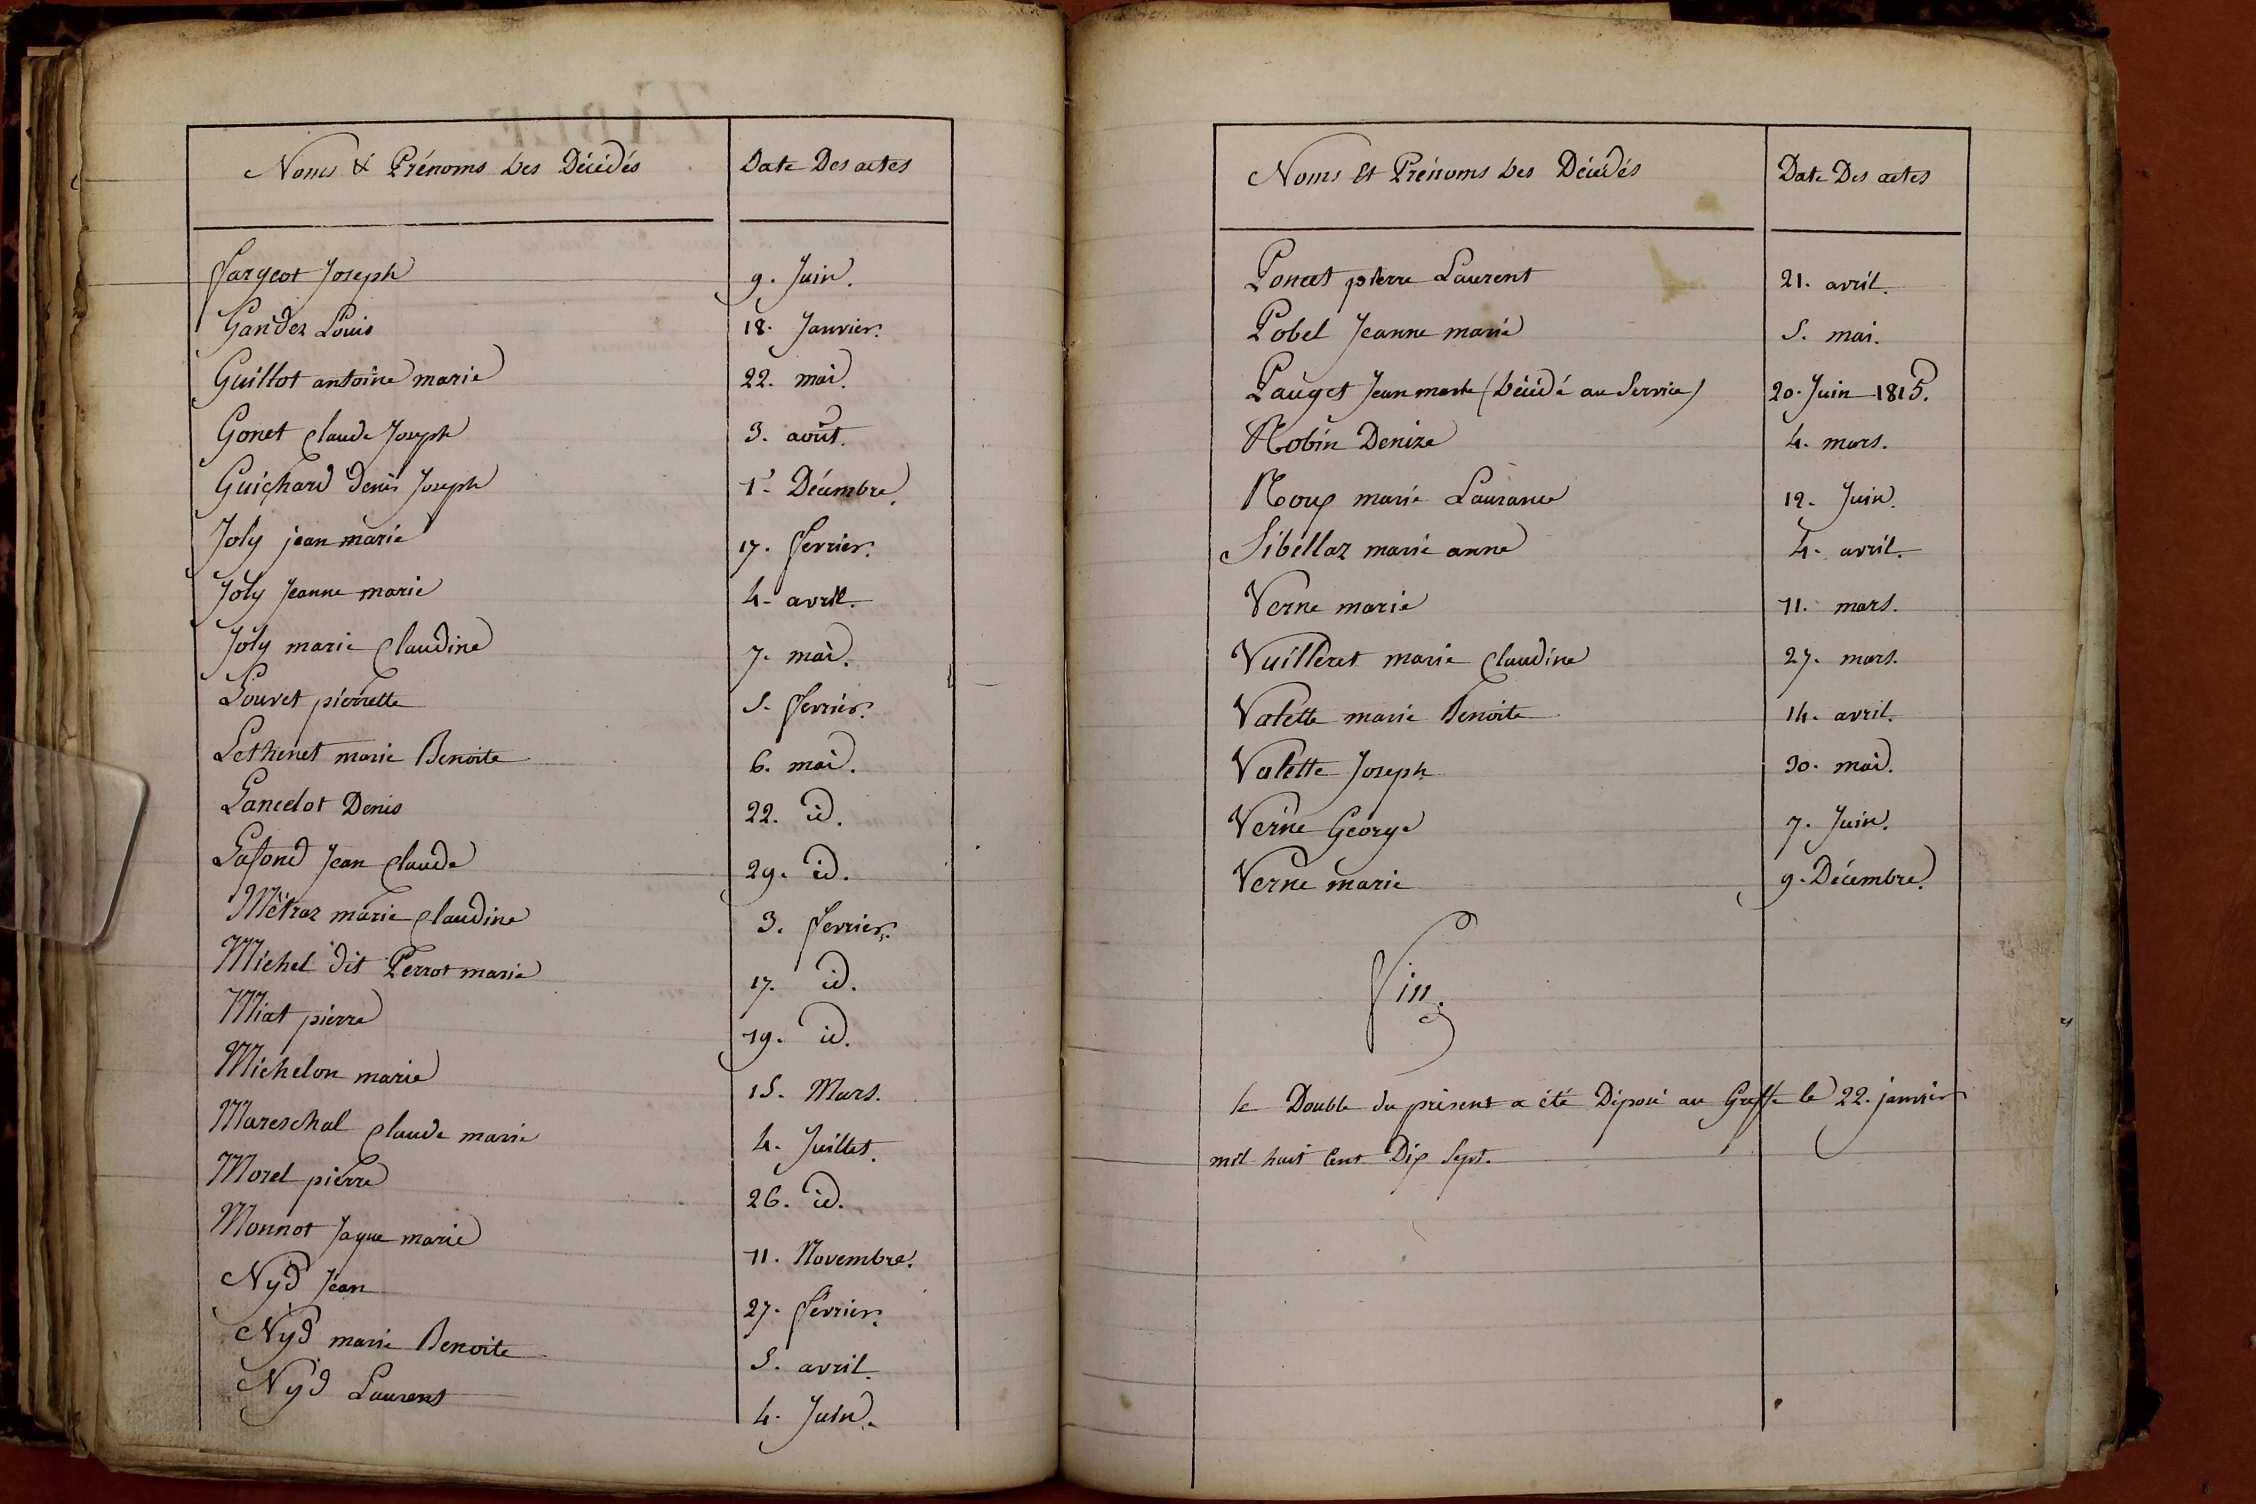 Noms & Prénoms des Décédés
Date Des actes
fargeot Joseph
9. Juin.
Gandez Louis
18. Janvier.
Guillot antoine marie
22. mai.
Gonet Claude Joseph
3. août.
Guichard denis Joseph
1.r Décembre.
Joly jean marie
17. fevrier.
Joly Jeanne marie
4. avril.
Joly marie Claudine
7. mai.
Louvet pierrette
5. fevrier.
Lethenet marie Benoite
6. mai.
Lancelot Denis
22. id.
Lafond Jean Claude
29. id.
Métraz marie Claudine
3. fevrier.
Michel dit Perrot marie
17. id.
Miat pierre
19. id.
Michelon marie
15. Mars.
Mareschal Claude marie
4. Juillet.
Morel pierre
26. id.
Monnot Jaque marie
11. Novembre.
Nyd Jean
27. février.
Nyd marie Benoite
5. avril.
Nyd Laurent
4. Juin.
Noms Et Prénoms des Décédés
Date Des actes
Poncet pierre Laurent
21. avril.
Pobel Jeanne marie
5. mai.
Pauget Jean marie (décédé au Service)
20. Juin 1815.
Robin Denize
4. mars.
Roux marie Laurance
12. Juin.
Sibellaz marie anne
4. avril.
Verne marie
11. mars.
Vuilleret marie Claudine
27. mars.
Valette marie Benoite
14. avril.
Valette Joseph
30. mai.
Verne George
7. Juin.
Verne marie
9. Décembre.
Fin.
le Double du présent a été Déposé au Greffe le 22. janvier
mil huit Cent Dix Sept.